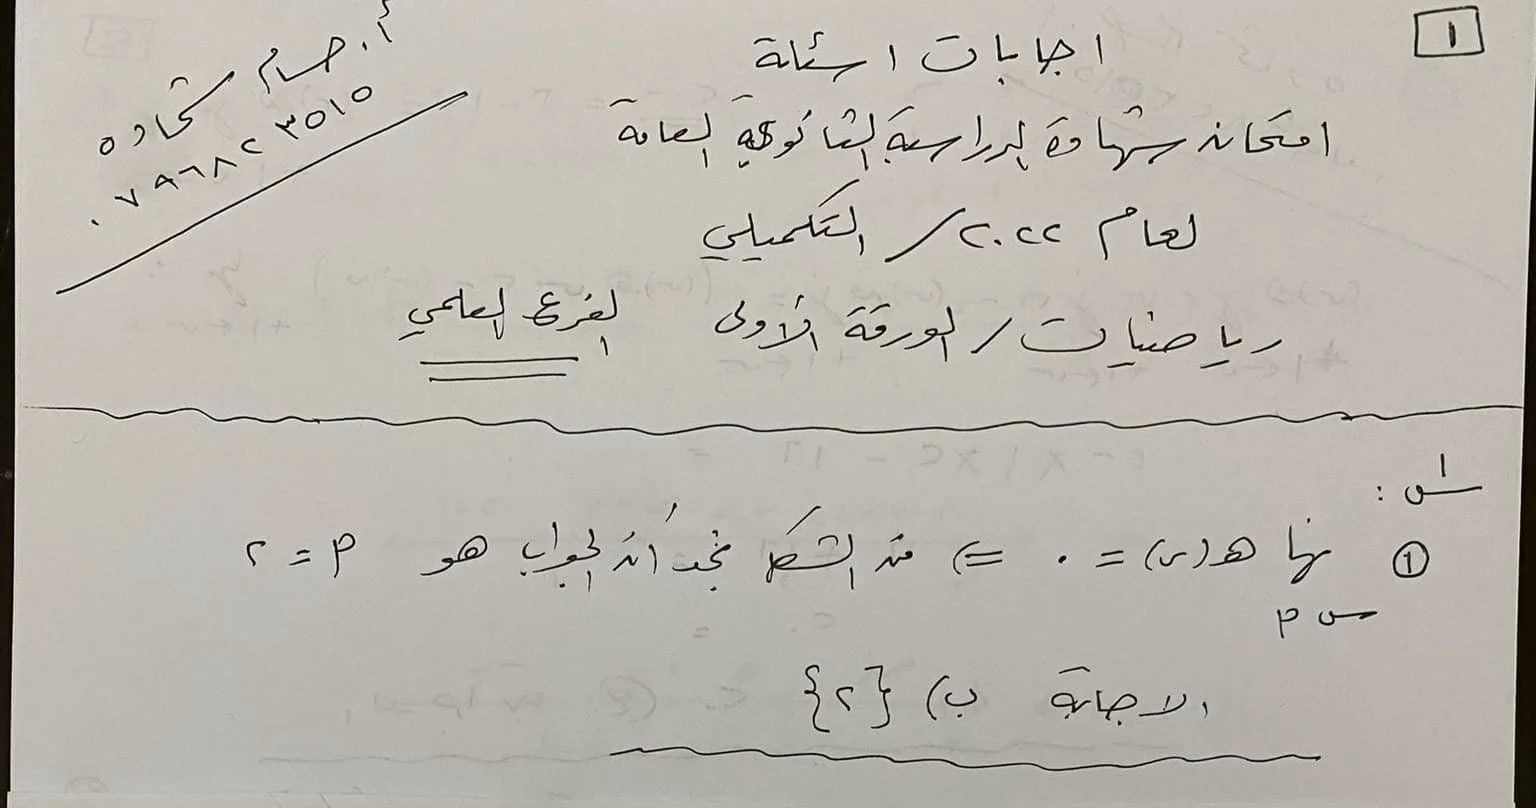 ١
اجابات اسئلة
امتحان شهادة الدراسة الثانوية العامة
لعام ٢٠٢٢ / التكميلي
رياضيات / الورقة الأولى الفرع العلمي
أ. حسام شحاده
٠٧٩٦٨٢٣٥١٥
س١ :
① نها هـ(س) = ٠ => من الشكل نجد أن الجواب هو م = ٢
س م
الاجابة ب) {٢}